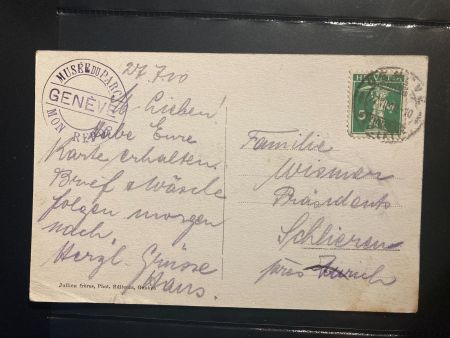 MUSÉE DU PARC
GENÈVE
MON REPOS
27. 7. 20
Ihr Lieben!
Habe Eure
Karte erhalten.
Brief & Wäsche
folgen morgen
nach.
Herzl. Grüsse
Hans.
Jullien frères, Phot. Editeurs, Genève
5
Familie
Wismer
Präsidents
Schlieren
près Zurich